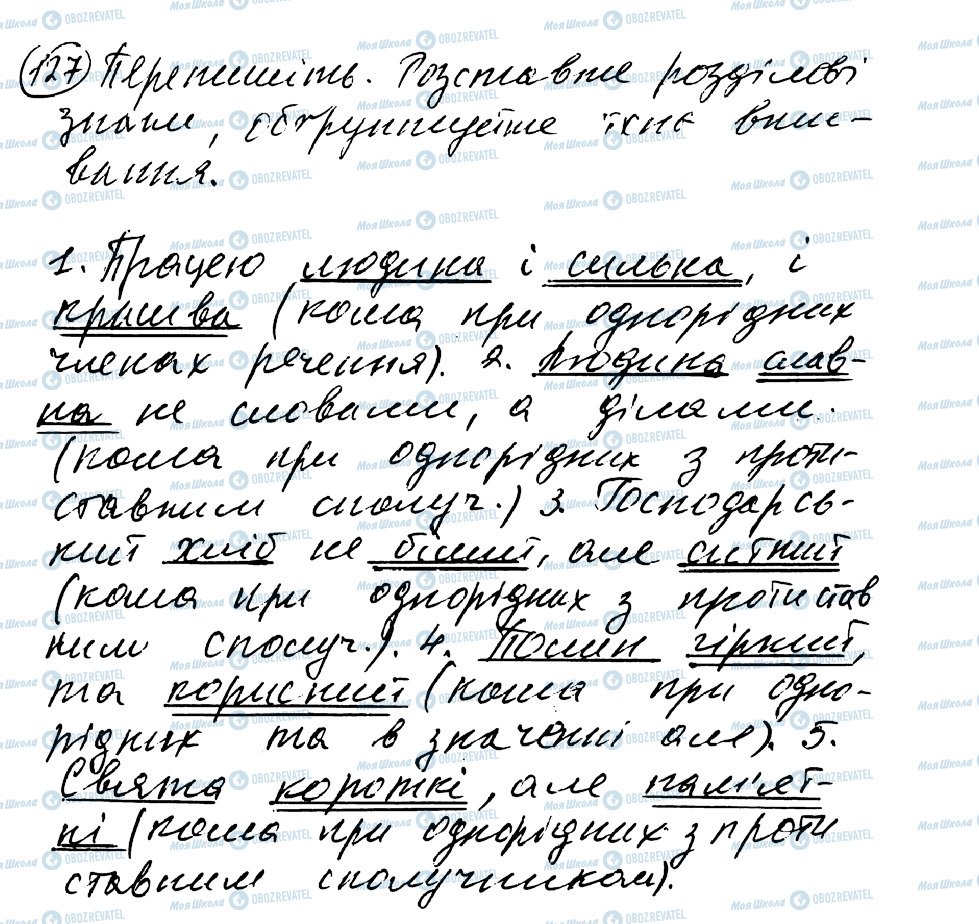 127 Перепишіть. Розставте розділові
знаки, обґрунтуйте їхнє вжи-
вання.
1. Працею людина і сильна, і
красива (кома при однорідних
членах речення). 2. Людина слав-
на не словами, а ділами.
(кома при однорідних з проти-
ставним сполуч.) 3. Господарсь-
кий хліб не білий, але ситний
(кома при однорідних з протистав
ним сполуч.). 4. Полин гіркий,
та корисний (кома при одно-
рідних та в значенні але). 5.
Свята короткі, але пам'ят-
ні (кома при однорідних з проти
ставним сполучником).